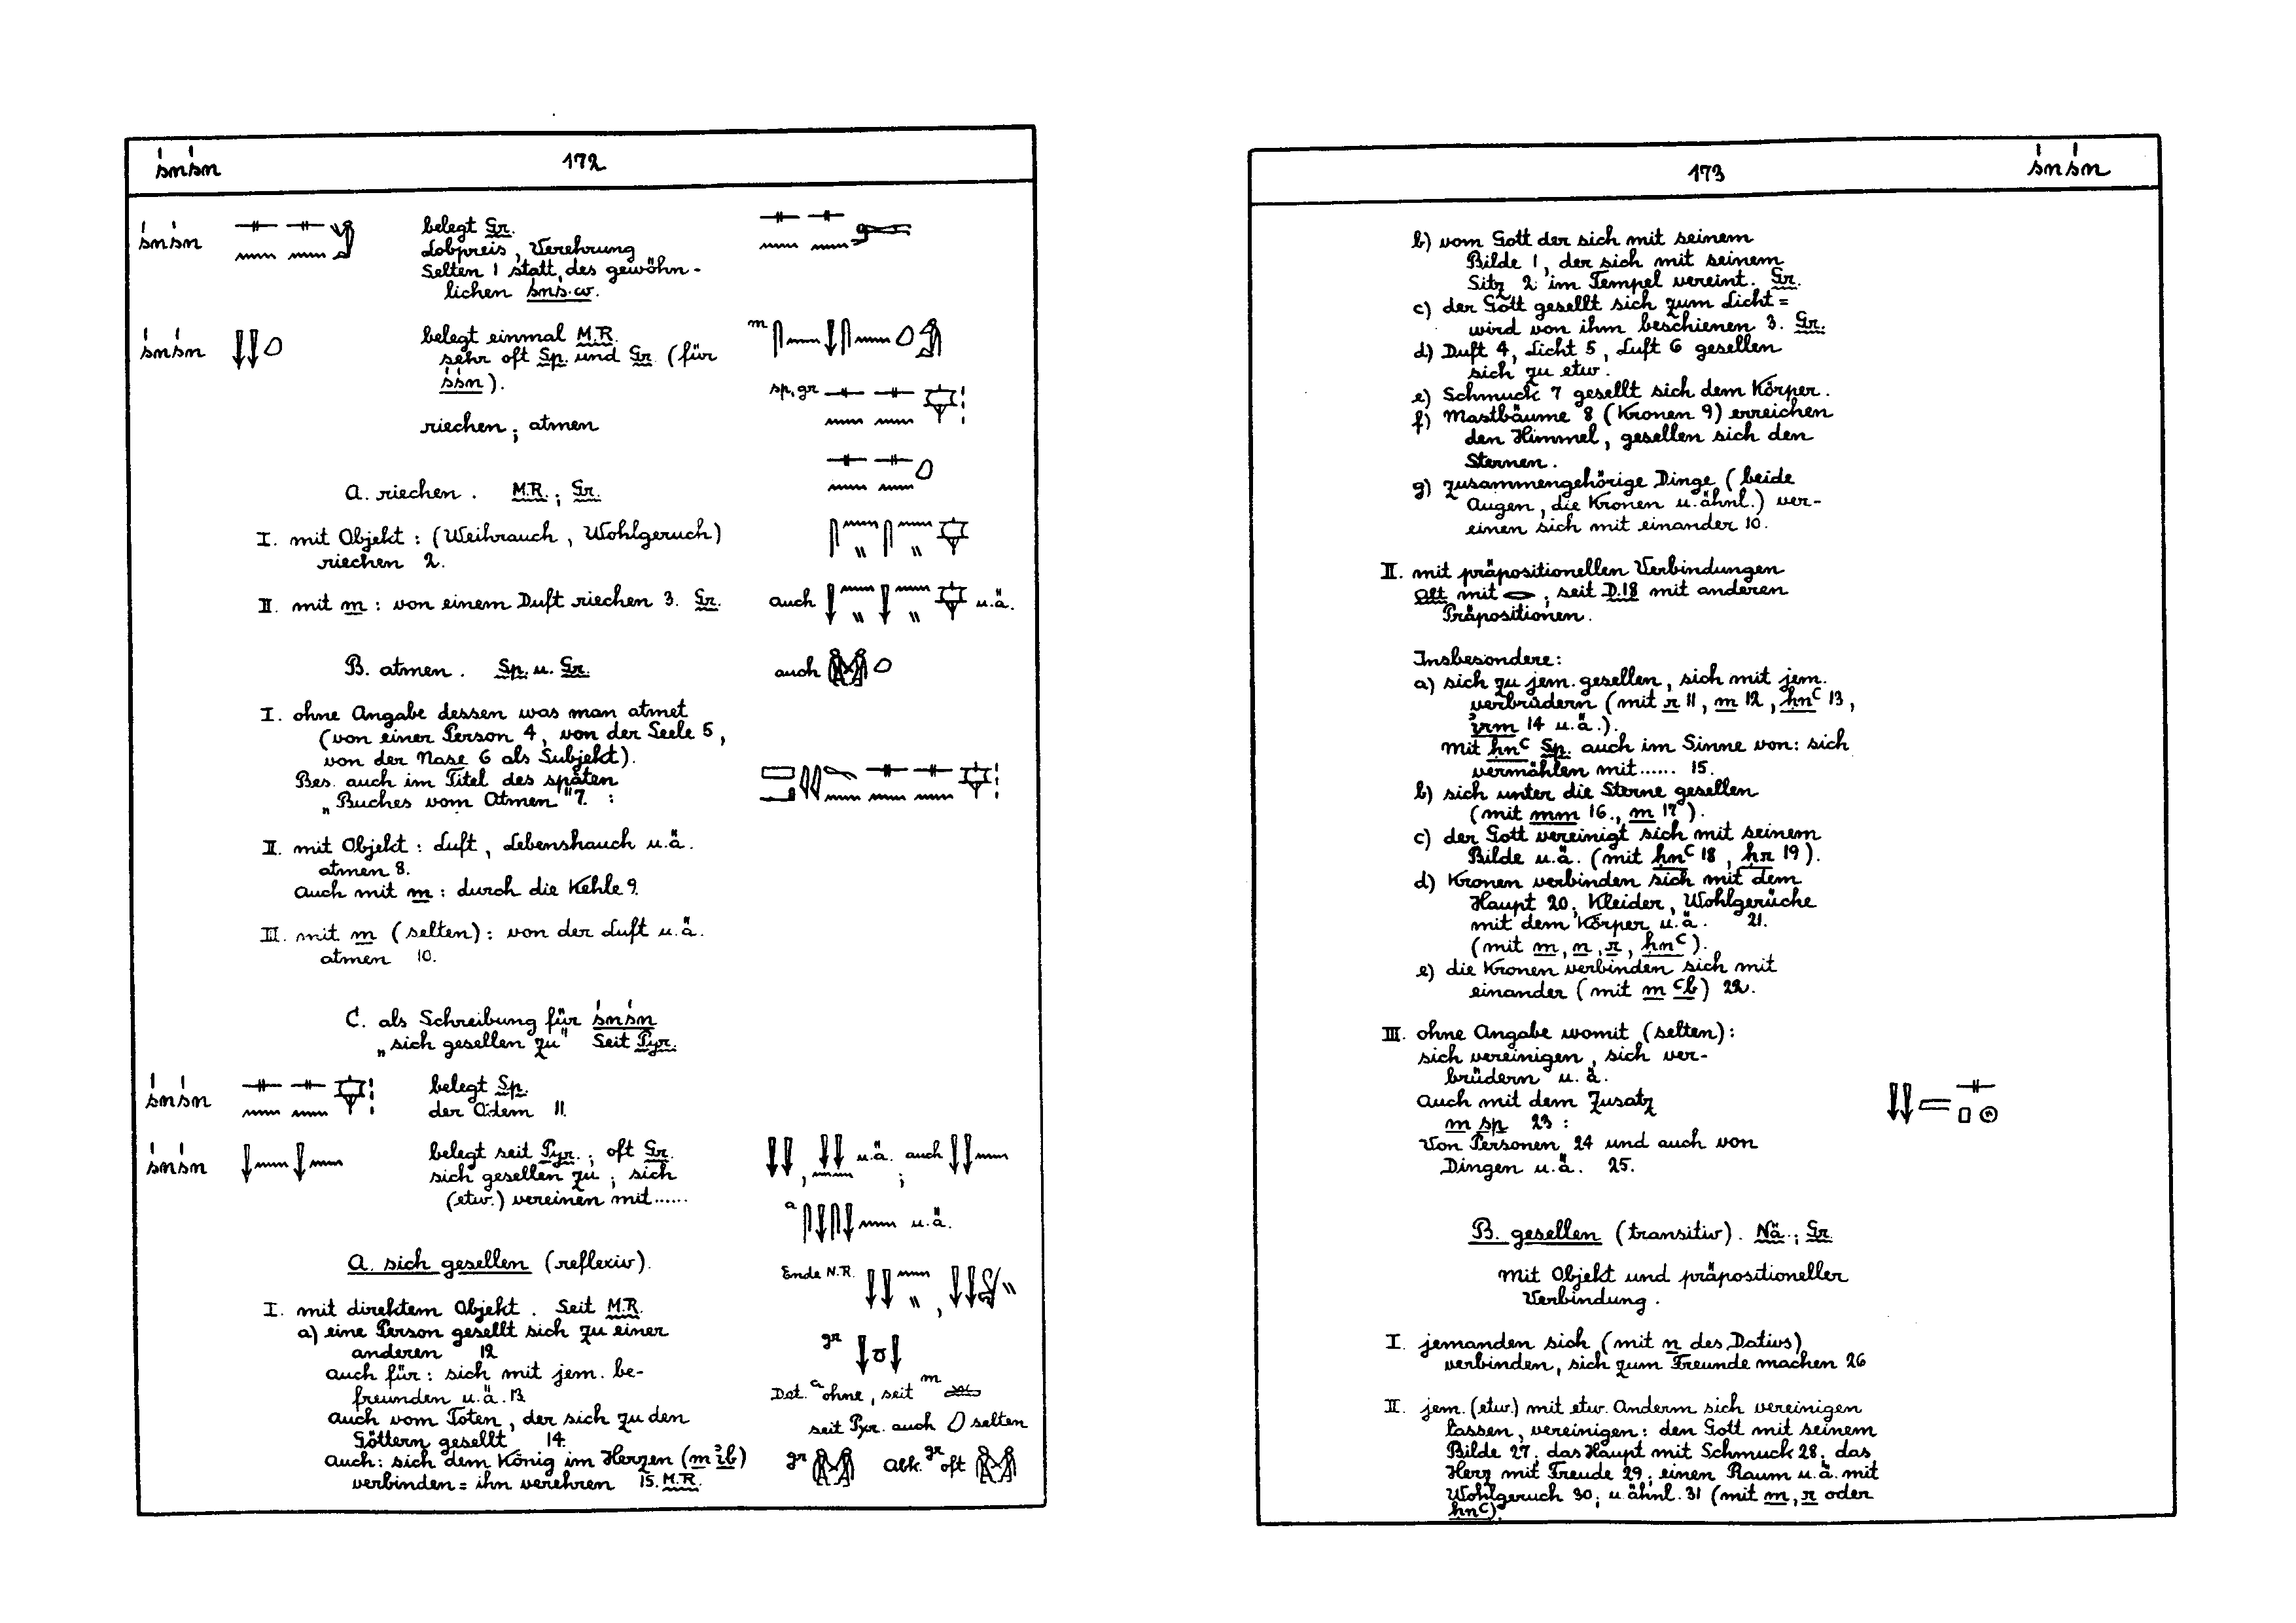 śnśn 172
śnśn belegt Gr.
Lobpreis, Verehrung
Selten 1 statt des gewöhn-
lichen śnś.w.
śnśn belegt einmal M.R.
sehr oft Sp. und Gr. (für
śśn).
riechen; atmen
m
sp, gr
A. riechen. M.R.; Gr.
I. mit Objekt: (Weihrauch, Wohlgeruch)
riechen 2.
II. mit m: von einem Duft riechen 3. Gr.
auch u.ä.
B. atmen. Sp. u. Gr.
auch
I. ohne Angabe dessen was man atmet
(von einer Person 4, von der Seele 5,
von der Nase 6 als Subjekt).
Bes. auch im Titel des späten
„Buches vom Atmen" 7. :
II. mit Objekt: Luft, Lebenshauch u.ä.
atmen 8.
Auch mit m: durch die Kehle 9.
III. mit m (selten): von der Luft u.ä.
atmen 10.
C. als Schreibung für śnśn
„sich gesellen zu" Seit Pyr.
śnśn belegt Sp.
der Odem 11.
śnśn belegt seit Pyr.; oft Gr.
sich gesellen zu; sich
(etw.) vereinen mit......
, u.ä. auch ;
a u.ä.
A. sich gesellen (reflexiv).
Ende N.R. ,
I. mit direktem Objekt. Seit M.R.
a) eine Person gesellt sich zu einer
anderen 12
auch für: sich mit jem. be-
freunden u.ä. 13
auch vom Toten, der sich zu den
Göttern gesellt 14.
Auch: sich dem König im Herzen (m ỉb)
verbinden = ihn verehren 15. M.R.
gr
Det. a ohne, seit m
seit Pyr. auch selten
gr Abk. gr oft
173 śnśn
b) vom Gott der sich mit seinem
Bilde 1, der sich mit seinem
Sitz 2 im Tempel vereint. Gr.
c) der Gott gesellt sich zum Licht =
wird von ihm beschienen 3. Gr.
d) Duft 4, Licht 5, Luft 6 gesellen
sich zu etw.
e) Schmuck 7 gesellt sich dem Körper.
f) Mastbäume 8 (Kronen 9) erreichen
den Himmel, gesellen sich den
Sternen.
g) zusammengehörige Dinge (beide
Augen, die Kronen u.ähnl.) ver-
einen sich mit einander 10.
II. mit präpositionellen Verbindungen
Alt mit 𓂋; seit D.18 mit anderen
Präpositionen.
Insbesondere:
a) sich zu jem. gesellen, sich mit jem.
verbrüdern (mit r 11, m 12, ḥnꜥ 13,
ỉrm 14 u.ä.).
Mit ḥnꜥ Sp. auch im Sinne von: sich
vermählen mit...... 15.
b) sich unter die Sterne gesellen
(mit mm 16., m 17).
c) der Gott vereinigt sich mit seinem
Bilde u.ä. (mit ḥnꜥ 18, ḥr 19).
d) Kronen verbinden sich mit dem
Haupt 20; Kleider, Wohlgerüche
mit dem Körper u.ä. 21.
(mit m, n, r, ḥnꜥ).
e) die Kronen verbinden sich mit
einander (mit m ꜥb) 22.
III. ohne Angabe womit (selten):
sich vereinigen, sich ver-
brüdern u.ä.
Auch mit dem Zusatz
m sp 23 :
Von Personen 24 und auch von
Dingen u.ä. 25.
B. gesellen (transitiv). Nä.; Gr.
Mit Objekt und präpositioneller
Verbindung.
I. jemanden sich (mit n des Dativs)
verbinden, sich zum Freunde machen 26
II. jem. (etw.) mit etw. Anderm sich vereinigen
lassen, vereinigen: den Gott mit seinem
Bilde 27; das Haupt mit Schmuck 28; das
Herz mit Freude 29; einen Raum u.ä. mit
Wohlgeruch 30; u.ähnl. 31 (mit m, r oder
ḥnꜥ).